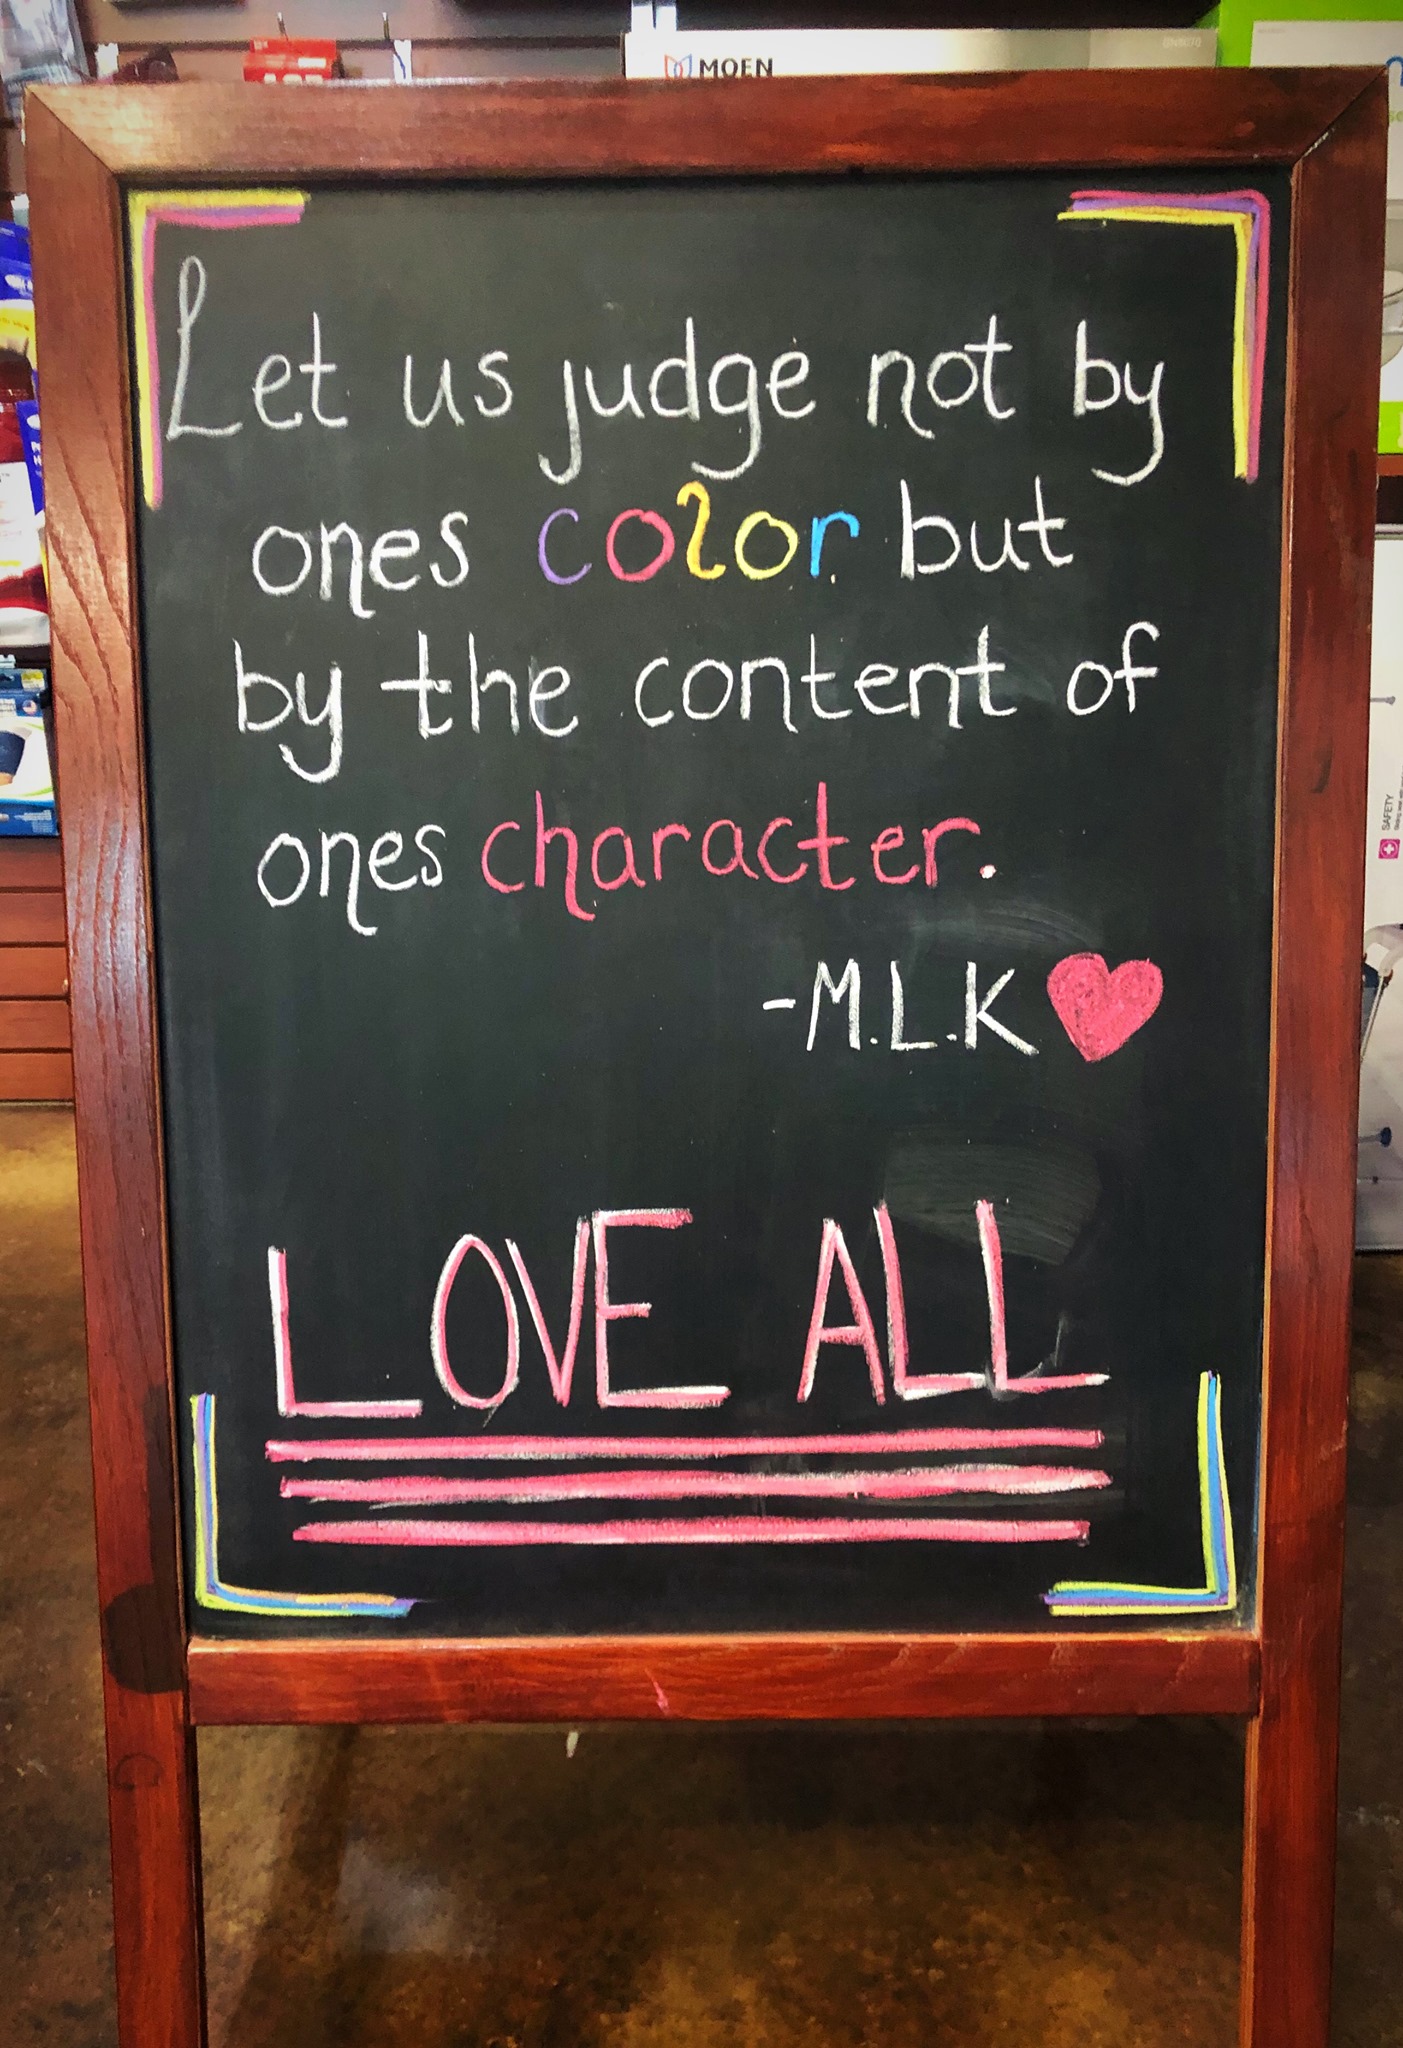 MOEN
Let us judge not by
ones color but
by the content of
ones character.
-M.L.K
LOVE ALL
SAFETY